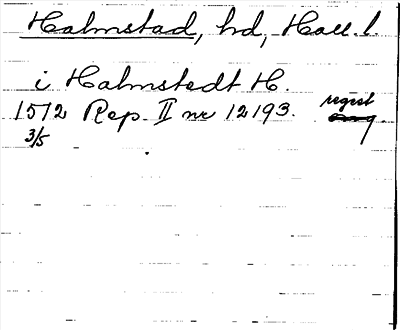 Halmstad, hd, Hall. l.
i Halmstedt H.
1572 Rep. II nr 12193. regist
3/5